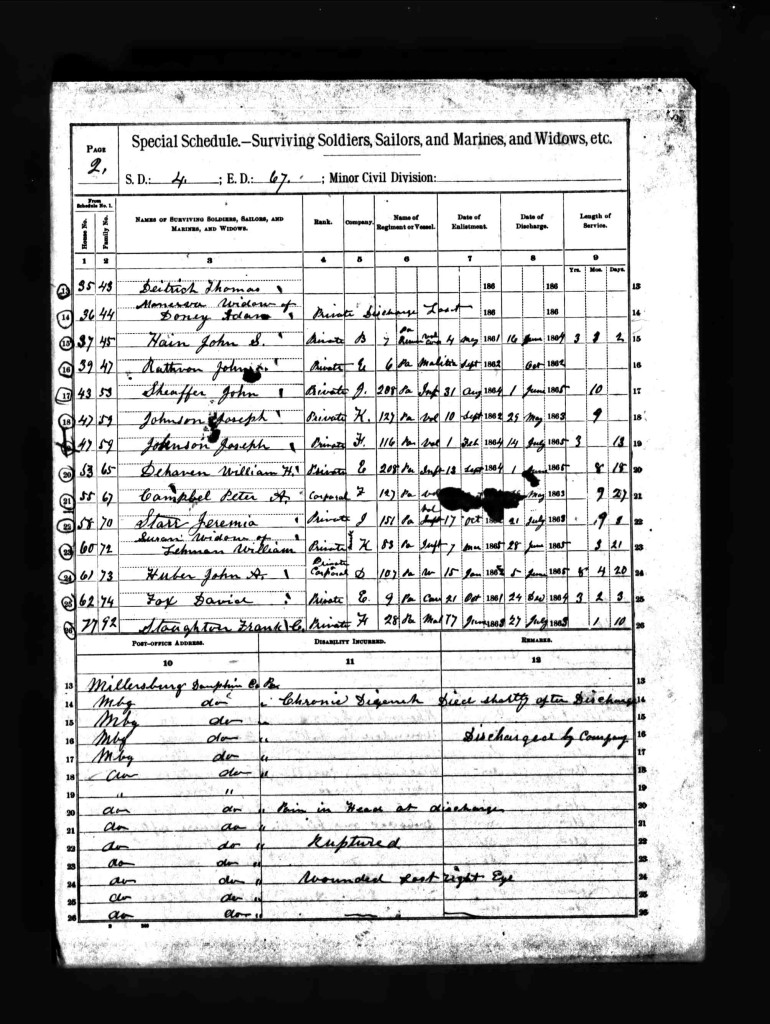 PAGE
2.
Special Schedule.—Surviving Soldiers, Sailors, and Marines, and Widows, etc.
S. D.: 4. ; E. D.: 67. ; Minor Civil Division:
From Schedule No. 1.
House No. Family No. NAMES OF SURVIVING SOLDIERS, SAILORS, AND MARINES, AND WIDOWS. Rank. Company. Name of Regiment or Vessel. Date of Enlistment. Date of Discharge. Length of Service.
1 2 3 4 5 6 7 8 9
Yrs. Mos. Days.
13 35 43 Deitrich Thomas 186 186 13
14 36 44 Widow of Doney Adam Private Discharge Lost 186 186 14
15 37 45 Hain John S. Private B 7 Pa 4 May 1861 16 June 1864 3 2 15
16 39 47 Rathvon John Private E 6 Pa Malitia Sept 1862 Oct 1862 16
17 43 53 Sheaffer John Private J. 208 Pa Inft 31 Aug 1864 1 June 1865 10 17
18 47 59 Johnson Joseph Private K. 127 Pa Vol 10 Sept 1862 29 May 1863 9 18
19 47 59 Johnson Joseph Private H. 116 Pa Vol 1 Feb 1864 14 July 1865 3 13 19
20 53 65 Dehaven William H. Private E 208 Pa Inft 13 Sept 1864 1 June 1865 8 18 20
21 55 67 Campbel Peter A. Corporal 127 Pa May 1863 9 27 21
22 58 70 Starr Jeremia Private J 151 Pa Vol Inft 17 Oct 21 July 1863 9 22
23 60 72 Susan Widow of Lehman William Private K 83 Pa Inft 7 Mar 1865 28 June 1865 3 21 23
24 61 73 Huber John A. Private Corporal D 107 Pa 15 Jan 5 June 1865 4 20 24
25 62 74 Fox David Private C. 9 Pa Cav 21 Oct 1861 24 Dec 1864 3 2 3 25
26 77 92 Staughtver Frank C. Private H 28 Pa Mal 17 June 1863 27 July 1863 1 10 26
POST-OFFICE ADDRESS. DISABILITY INCURRED. REMARKS.
10 11 12
13 Millersburg Dauphin Co Pa 13
14 Mbg do " Chronic Died shortly after Discharge 14
15 Mbg do " 15
16 Mbg do " Discharged by Company 16
17 Mbg do " 17
18 do do " 18
19 " " 19
20 do do " Pain in Head at discharge 20
21 do do " 21
22 do do " Ruptured 22
23 do do " 23
24 do do " Wounded Lost right Eye 24
25 do do " 25
26 do do " 26